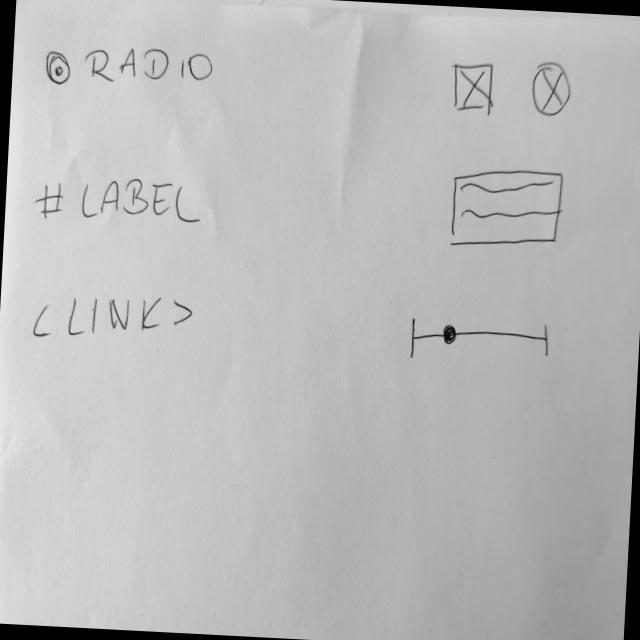 RADIO
# LABEL
<LINK>